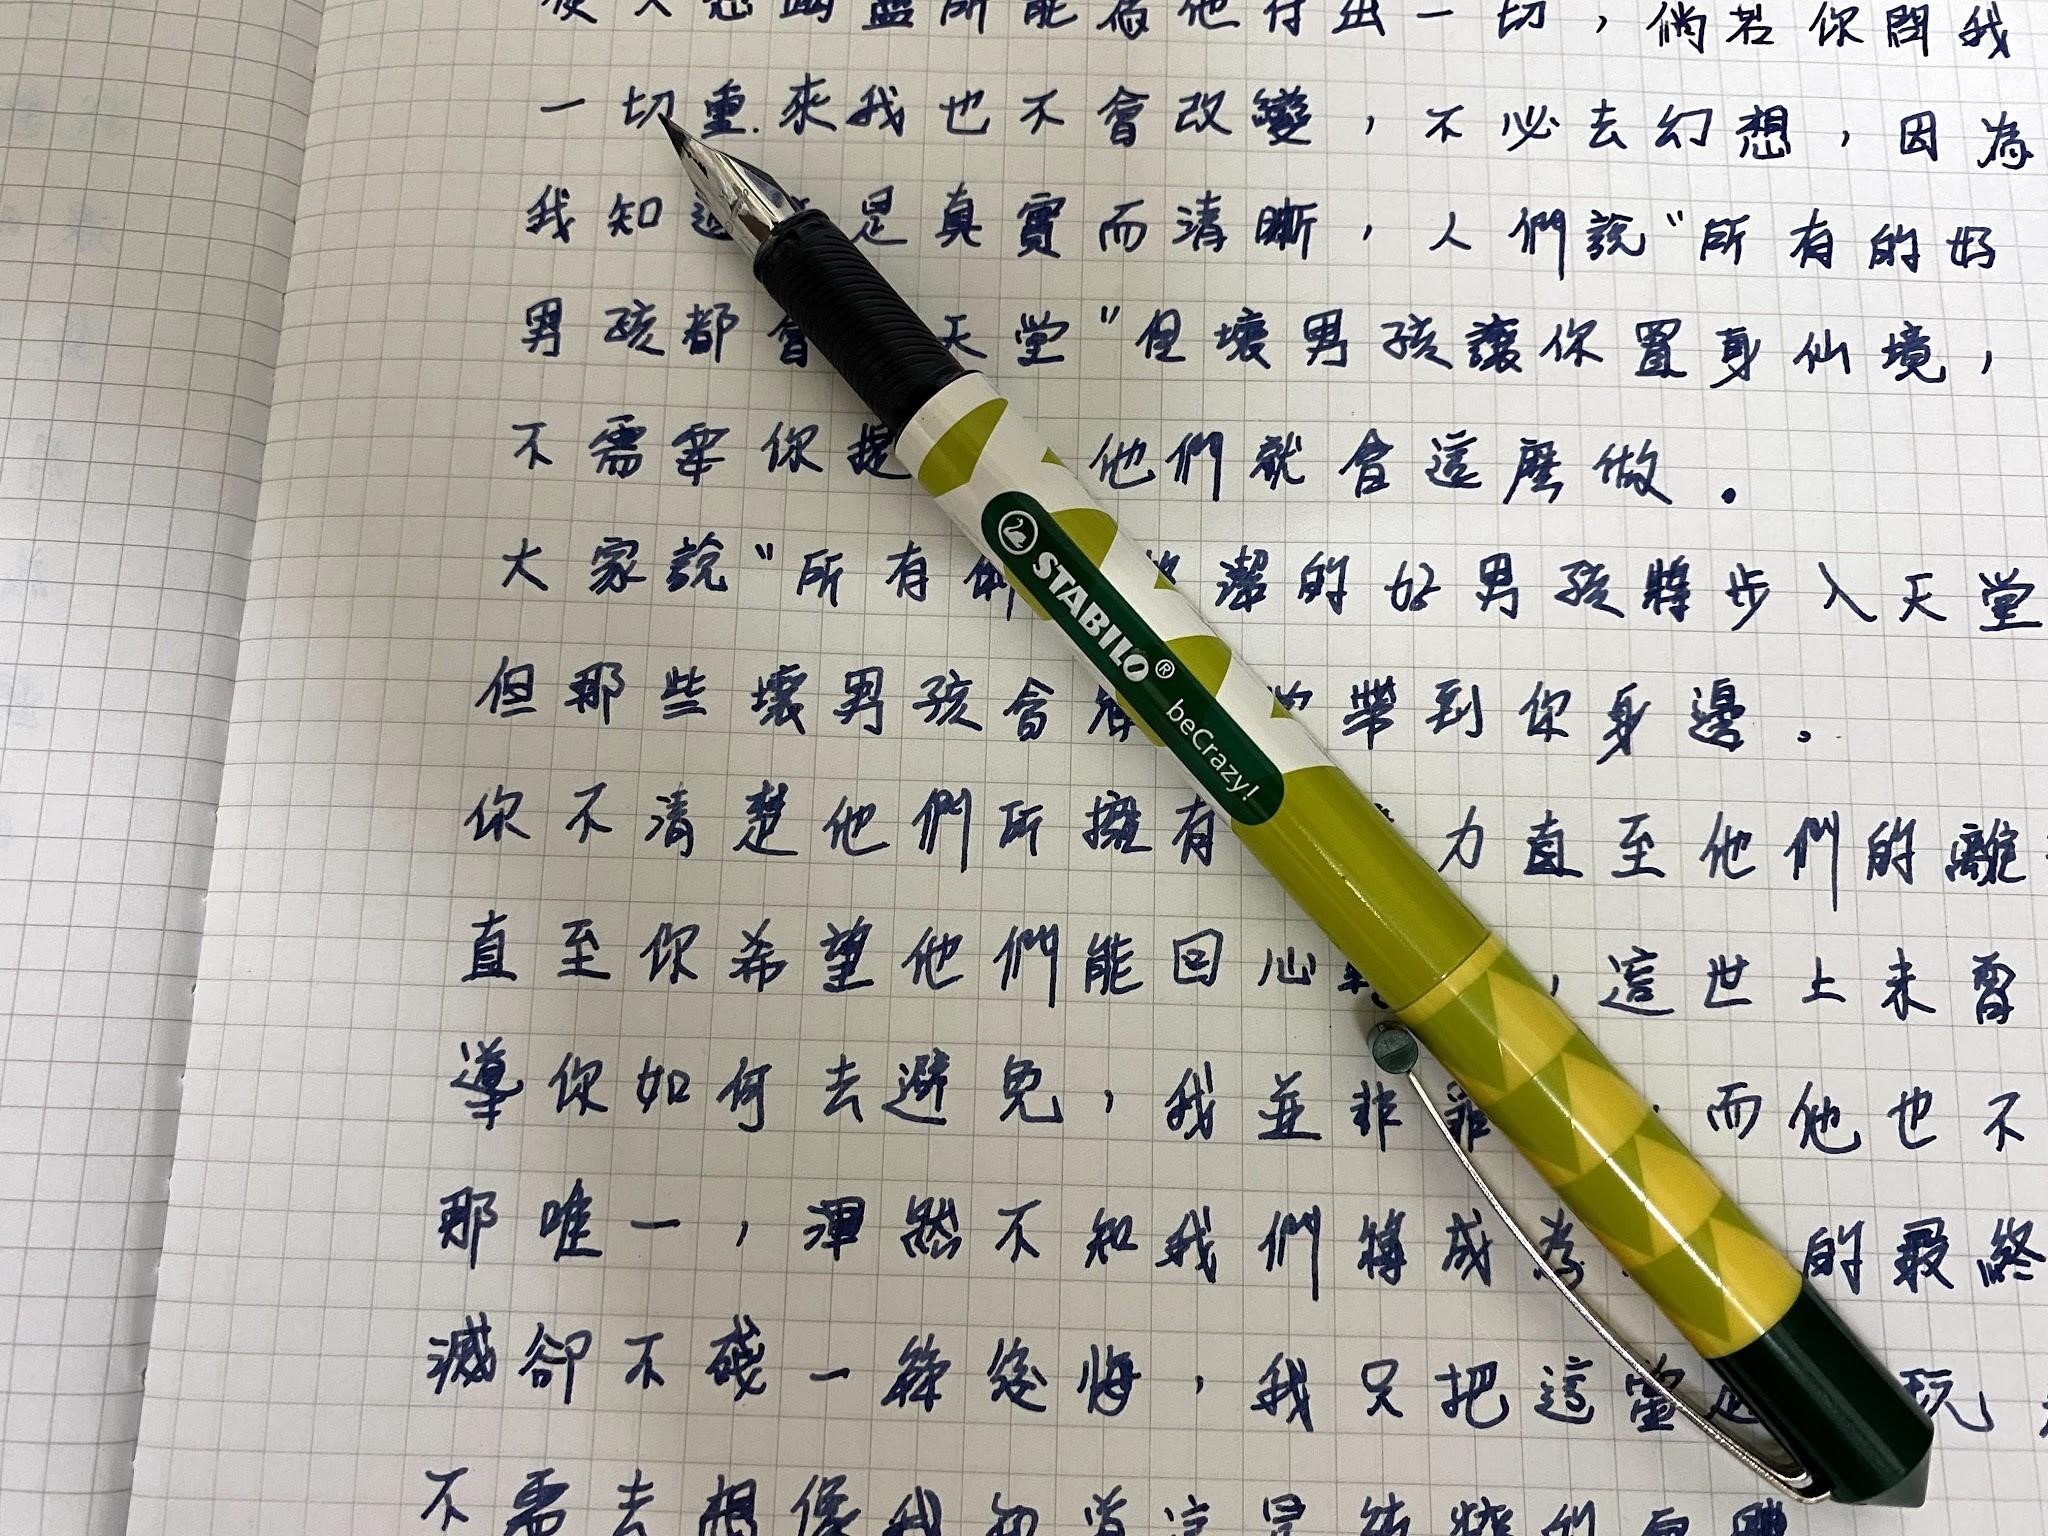 一切,倘若你問我
一切重來我也不會改變,不必去幻想,因為
我知 是真實而清晰,人們說"所有的好
男孩都會 天堂"但壞男孩讓你置身仙境,
不需要你提 他們就會這麼做.
大家說"所有 潔的好男孩將步入天堂
但那些壞男孩會 帶到你身邊。
你不清楚他們所擁有 力直至他們的離
直至你希望他們能回心 ,這世上未曾
導你如何去避免,我並非 ,而他也不
那唯一,渾然不知我們將成為 的最終
滅卻不殘一絲後悔,我只把這當 玩
不需去想像我知道這是
STABILO®
beCrazy!